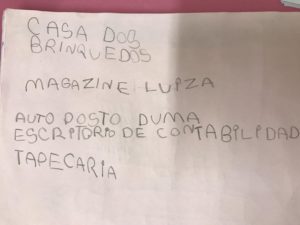 CASA DOS
BRINQUEDOS
MAGAZINE LUIZA
AUTO POSTO DUMA
ESCRITORIO DE CONTABILIDAD
TAPECARIA